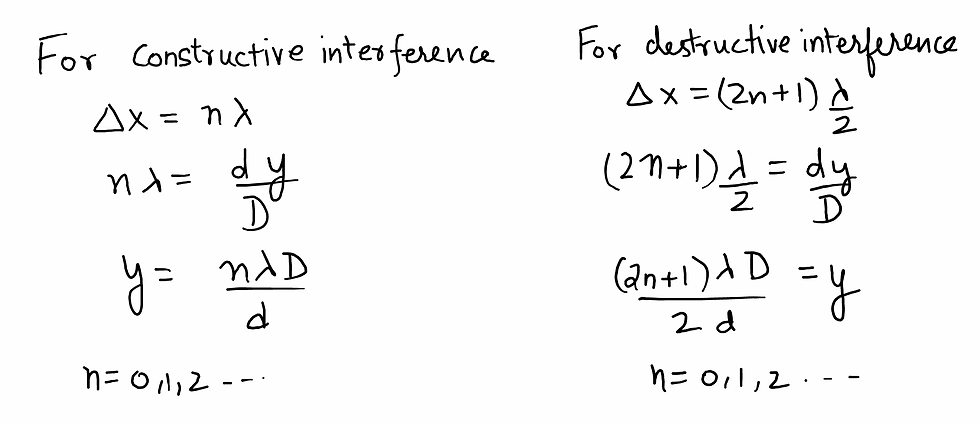 For constructive interference
Δx = nλ
nλ = dy/D
y = nλD/d
n = 0,1,2 ----
For destructive interference
Δx = (2n+1) λ/2
(2n+1) λ/2 = dy/D
(2n+1)λD/2d = y
n = 0,1,2 . - -